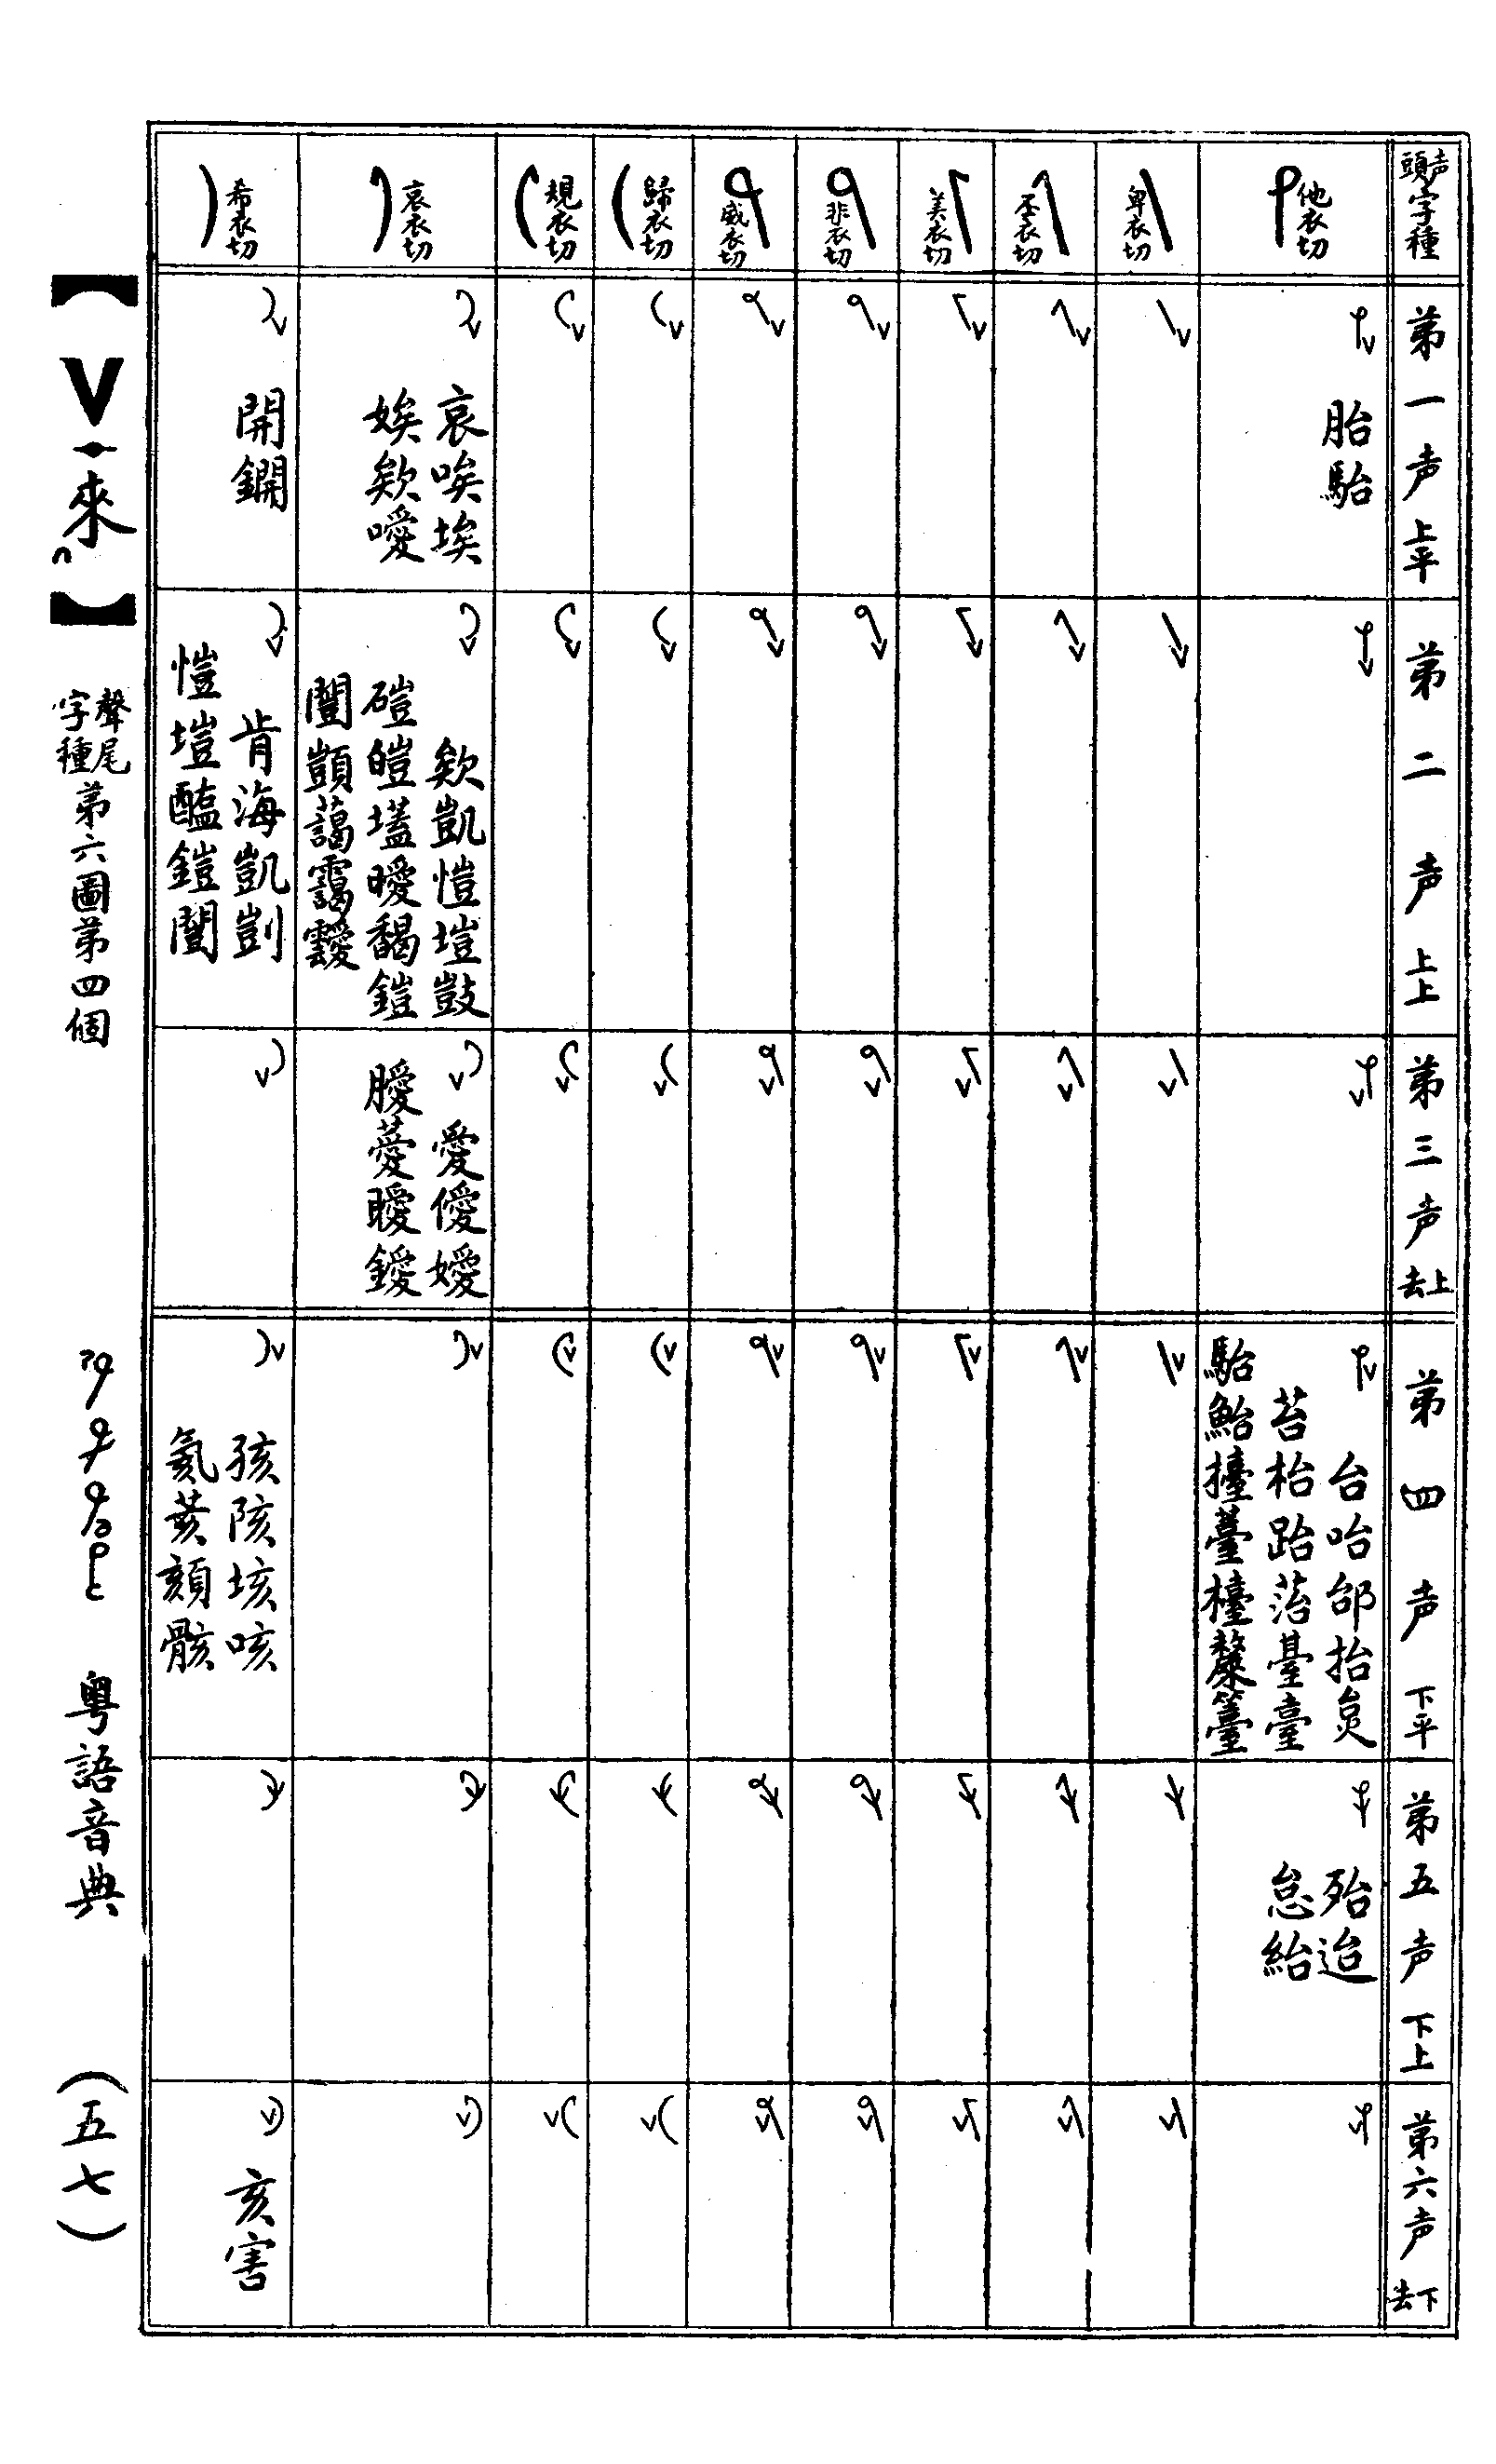 声頭字種
第一声 上平
第二声 上上
第三声 上去
第四声 下平
第五声 下上
第六声 下去
他衣切
胎駘
台咍邰抬炱
苔枱跆菭臺臺
駘鮐擡薹檯簺籉
殆迨
怠紿
卑衣切
丕衣切
美衣切
非衣切
威衣切
歸衣切
規衣切
哀衣切
哀唉埃
娭欸噯
欸凱愷塏敳
磑皚壒曖馤鎧
闓顗藹靄靉
愛僾嬡
膉薆曖鑀
希衣切
開鐦
肯海凱剴
愷塏醢鎧闓
孩陔垓咳
氦荄頦骸
亥害
【V·來】
聲尾字種第六圖第四個
粵語音典
(五七)